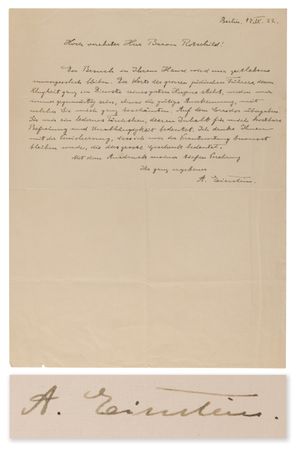 Berlin, 17.III. 22.
Hoch verehrter Herr Baron Rotschild!
Der Besuch in Ihrem Hause wird mir zeitlebens
unvergesslich bleiben. Die Worte des grossen jüdischen Führers, dessen
Klugheit ganz im Dienste eines guten Herzens steht, werden mir
immer gegenwärtig sein, ebenso die gütige Anerkennung, mit
welcher Sie mich ganz beschämten. Auf dem übergaben
Sie mir ein ledernes Täschchen, dessen Inhalt für mich kostbare
Befreiung und Unabhängigkeit bedeutet. Ich danke Ihnen
mit der Versicherung, dass ich mir der Verantwortung bewusst
bleiben werde, die das grosse Geschenk bedeutet.
Mit dem Ausdruck meiner tiefen Verehrung
Ihr ganz ergebener
A. Einstein.
A. Einstein.